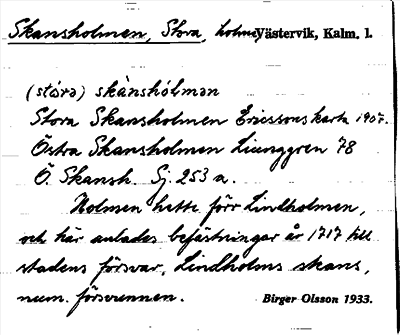 Skansholmen, Stora, holme, Västervik, Kalm. l.
(stóra) skànshólmən
Stora Skansholmen Ericssons karta 1907.
Östra Skansholmen Ljunggren 78
Ö. Skansh. Sj 253 a.
Holmen hette förr Lindholmen,
och här anlades befästningar år 1717 till
stadens försvar, Lindholms skans,
num. försvunnen.
Birger Olsson 1933.